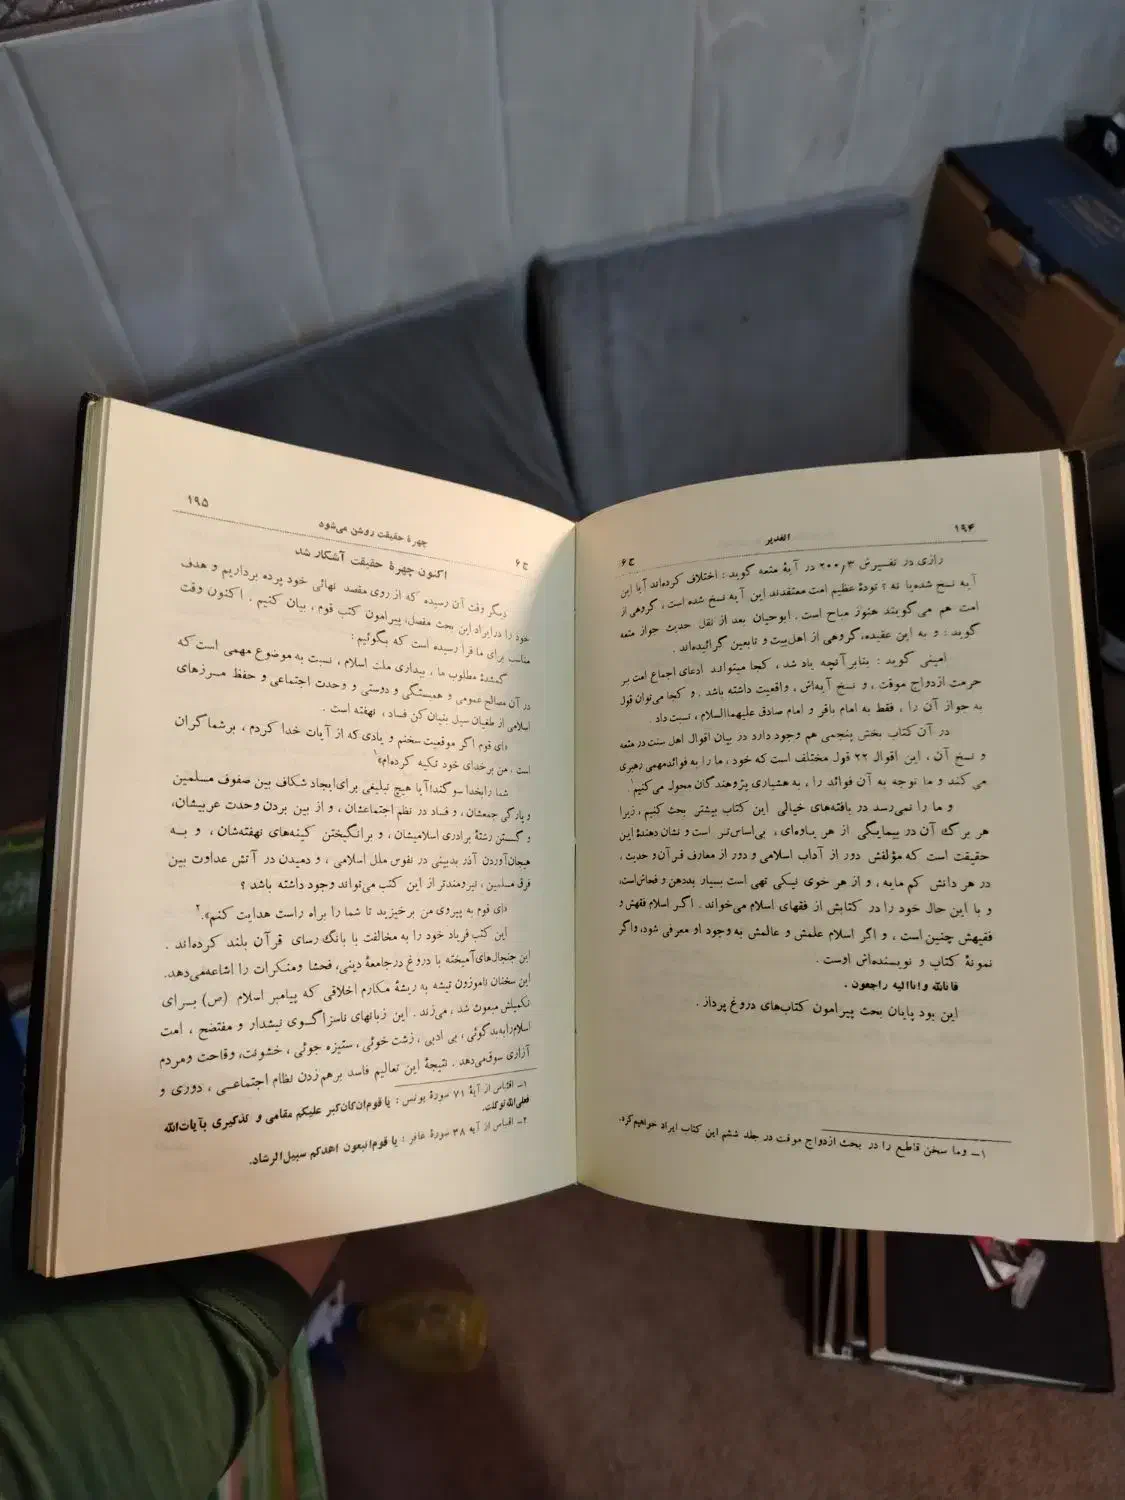 ۱۹۴
الغدیر
ج ۶
رازی در تفسیرش ۲۰۰/۳ در آیهٔ متعه گوید : اختلاف کرده‌اند آیا این
آیه نسخ شده‌یا نه ؟ تودهٔ عظیم امت معتقدند این آیه نسخ شده است ، گروهی از
امت هم می‌گویند هنوز مباح است . ابوحیان بعد از نقل حدیث جواز متعه
گوید : و به این عقیده، گروهی از اهل‌بیت و تابعین گرائیده‌اند .
امینی گوید : بنابرآنچه یاد شد ، کجا میتواند ادعای اجماع امت بر
حرمت ازدواج موقت ، و نسخ آیه‌اش ، واقعیت داشته باشد . و کجا می‌توان قول
به جواز آن را ، فقط به امام باقر و امام صادق علیهماالسلام ، نسبت داد .
در آن کتاب بخش پنجمی هم وجود دارد در بیان اقوال اهل سنت در متعه
و نسخ آن ، این اقوال ۲۲ قول مختلف است که خود ، ما را به فوائدمهمی رهبری
می کند و ما توجه به آن فوائد را ، به هشیاری پژوهندگان محول می‌کنیم۱.
و ما را نمی‌رسد در بافته‌های خیالی این کتاب بیشتر بحث کنیم ، زیرا
هر برگ آن در بیمایگی از هر یاوه‌ای ، بی‌اساس‌تر است و نشان دهندهٔ این
حقیقت است که مؤلفش دور از آداب اسلامی و دور از معارف قرآن و حدیث ،
در هر دانش کم مایه ، و از هر خوی نیکی تهی است بسیار بددهن و فحاش‌است،
و با این حال خود را در کتابش از فقهای اسلام می‌خواند . اگر اسلام فقهش و
فقیهش چنین است ، و اگر اسلام علمش و عالمش به وجود او معرفی شود، واگر
نمونهٔ کتاب و نویسنده‌اش اوست .
فانالله و اناالیه راجعون .
این بود پایان بحث پیرامون کتاب‌های دروغ پرداز .
۱ــ وما سخن قاطع را در بحث ازدواج موقت در جلد ششم این کتاب ایراد خواهیم‌کرد.
ج ۶
چهرهٔ حقیقت روشن می‌شود
۱۹۵
اکنون چهرهٔ حقیقت آشکار شد
دیگر وقت آن رسیده که از روی مقصد نهائی خود پرده برداریم و هدف
خود را درایراد این بحث مفصل، پیرامون کتب قوم ، بیان کنیم . اکنون وقت
مناسب برای ما فرا رسیده است که بگوئیم :
گمشدهٔ مطلوب ما ، بیداری ملت اسلام ، نسبت به موضوع مهمی است‌که
در آن مصالح عمومی و همبستگی و دوستی و وحدت اجتماعی و حفظ مرزهای
اسلامی از طغیان سیل بنیان کن فساد ، نهفته است .
«ای قوم اگر موقعیت سخنم و یادی‌که از آیات خدا کردم ، برشماگران
است ، من برخدای خود تکیه کرده‌ام»۱
شما رابخدا سوگندآیا هیچ تبلیغی برای‌ایجاد شکاف بین صفوف مسلمین
و پارگی جمعشان ، و فساد در نظم اجتماعشان ، و از بین بردن وحدت عربیشان،
و گسستن رشتهٔ برادری اسلامیشان ، و برانگیختن کینه‌های نهفته‌شان ، و به
هیجان‌آوردن آذر بدبینی در نفوس ملل اسلامی ، و دمیدن در آتش عداوت بین
فرق مسلمین ، نیرومندتر از این کتب می‌تواند وجود داشته باشد ؟
«ای قوم به پیروی من برخیزید تا شما را براه راست هدایت کنم».۲
این کتب فریاد خود را به مخالفت با بانگ رسای قرآن بلند کرده‌اند .
این جنجال‌های‌آمیخته با دروغ درجامعهٔ دینی، فحشا ومنکرات را اشاعه‌می‌دهد.
این سخنان ناموزون تیشه به ریشهٔ مکارم اخلاقی که پیامبر اسلام (ص) برای
تکمیلش مبعوث شد ، می‌زند . این زبانهای ناسزاگوی نیشدار و مفتضح ، امت
اسلام‌رابه‌بدگوئی ، بی ادبی ، زشت خوئی ، ستیزه جوئی ، خشونت، وقاحت ومردم
آزاری سوق‌می‌دهد . نتیجهٔ این تعالیم فاسد برهم‌زدن نظام اجتماعی ، دوری و
۱ــ اقتباس از آیهٔ ۷۱ سورهٔ یونس : یاقوم‌ان‌کان‌کبر علیکم مقامی و تذکیری بآیات‌الله
فعلی‌الله توکلت.
۲ــ اقتباس از آیه ۳۸ سورهٔ غافر : یا قوم‌اتبعون اهدکم سبیل‌الرشاد.